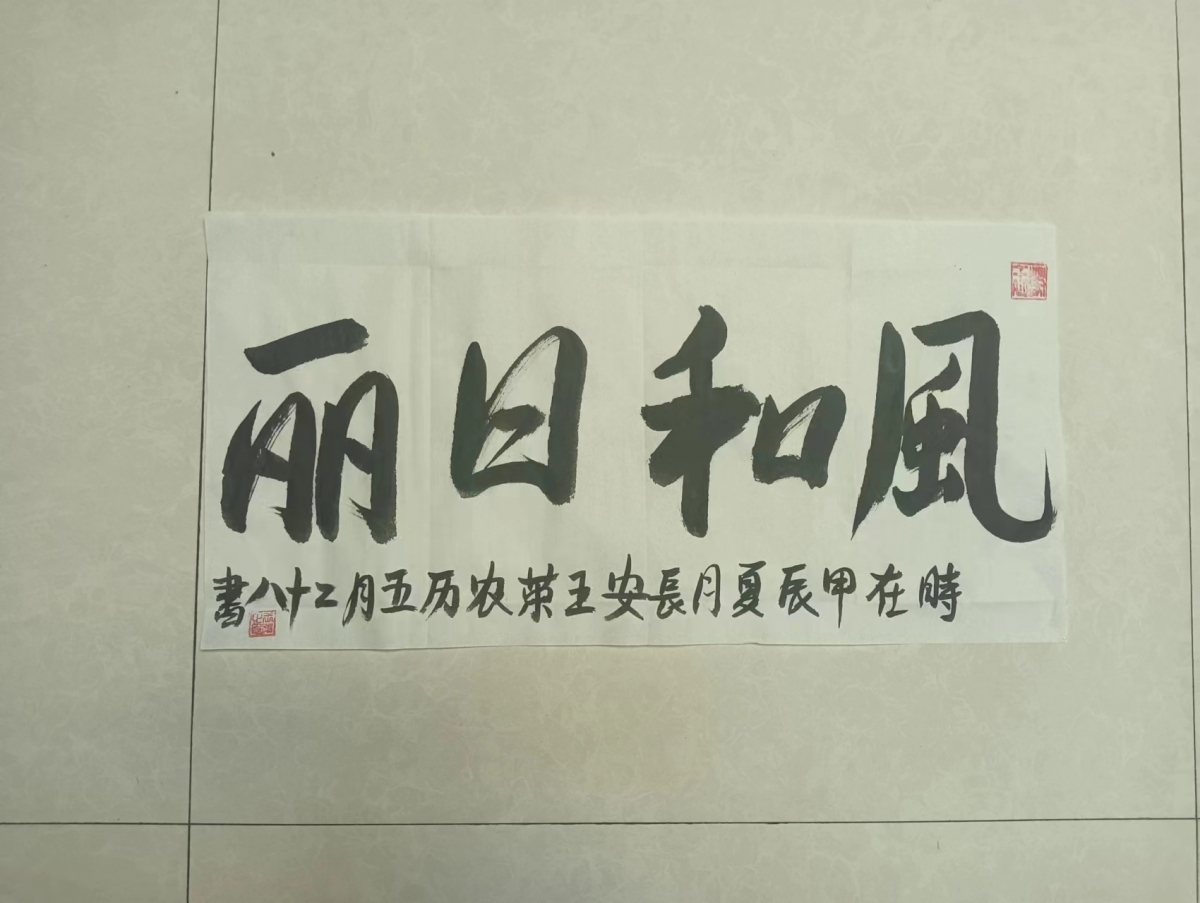 風和日丽
時在甲辰夏月長安王荣农历五月二十八書